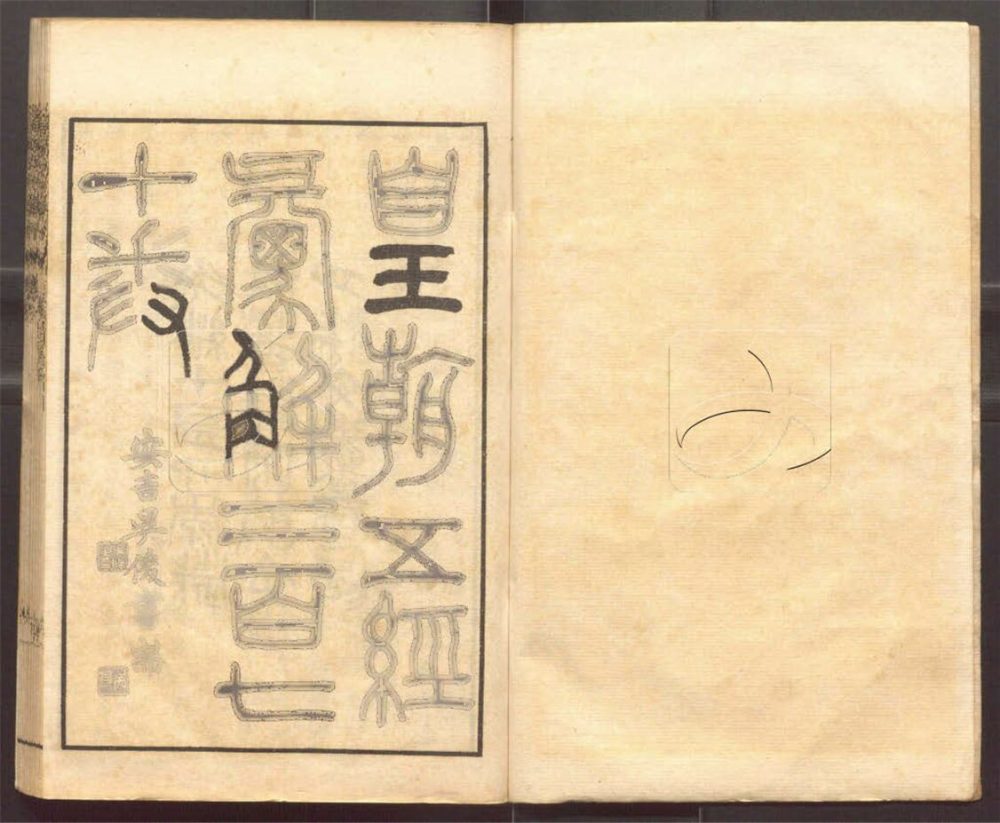 皇朝五經
彙解二百七
十卷
安吉吳俊書